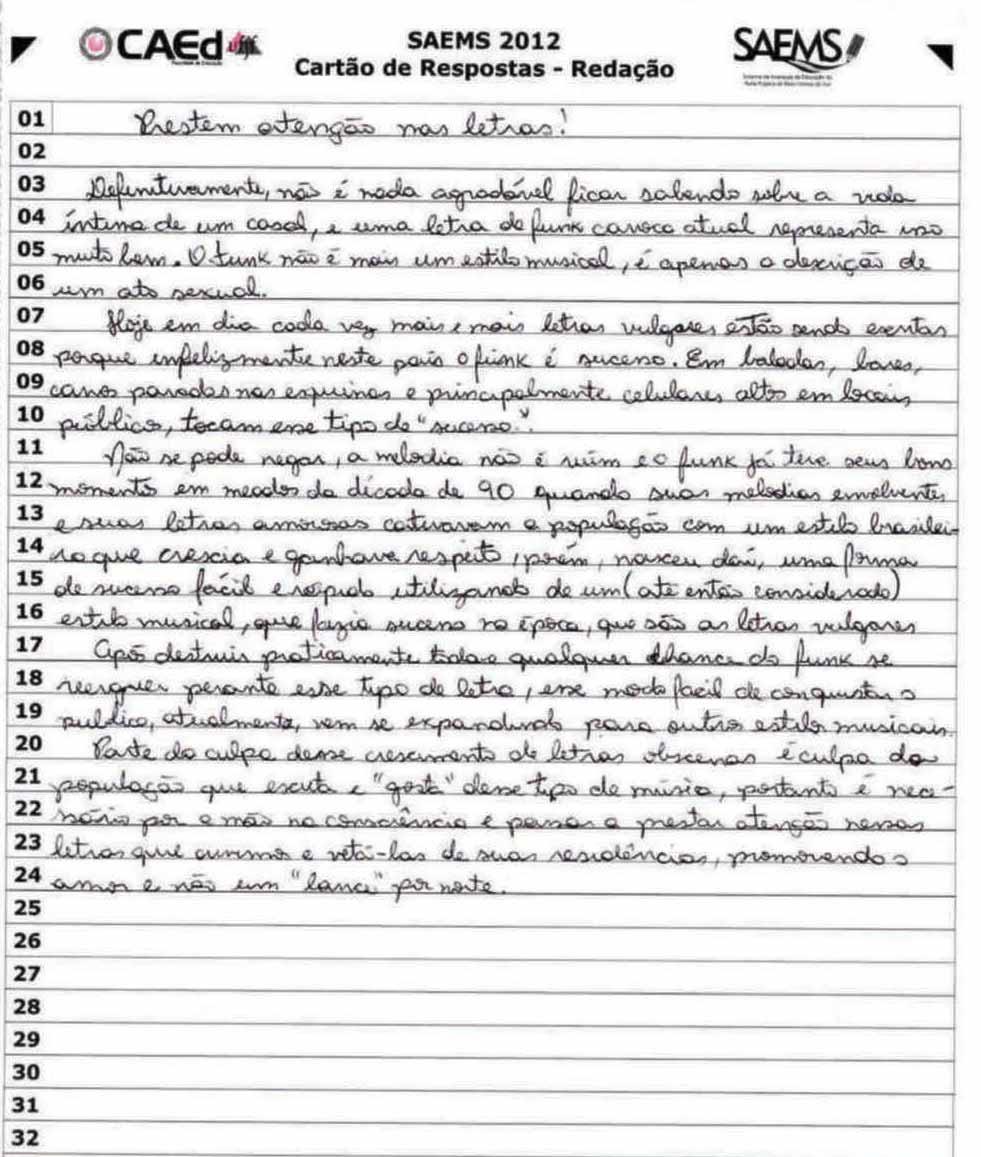 CAEd
SAEMS 2012
Cartão de Respostas - Redação
SAEMS
01 Prestem atenção nas letras!
02
03 Definitivamente, não é nada agradável ficar sabendo sobre a vida
04 íntima de um casal, e uma letra de funk carioca atual representa isso
05 muito bem. O funk não é mais um estilo musical, é apenas a descrição de
06 um ato sexual.
07 Hoje em dia cada vez mais e mais letras vulgares estão sendo escritas
08 porque infelizmente neste país o funk é sucesso. Em baladas, bares,
09 carros parados nas esquinas e principalmente celulares altos em locais
10 públicos, tocam esse tipo de "sucesso".
11 Não se pode negar, a melodia não é ruim e o funk já teve seus bons
12 momentos em meados da década de 90 quando suas melodias envolventes
13 e suas letras amorosas cativavam a população com um estilo brasilei-
14 ro que crescia e ganhava respeito, porém, nasceu daí, uma forma
15 de sucesso fácil e rápido utilizando de um (até então considerado)
16 estilo musical, que fazia sucesso na época, que são as letras vulgares
17 Após destruir praticamente toda e qualquer chance do funk se
18 reerguer perante esse tipo de letra, esse modo fácil de conquistar o
19 publico, atualmente, vem se expandindo para outros estilos musicais.
20 Parte da culpa desse crescimento de letras obscenas é culpa da
21 população que escuta e "gosta" desse tipo de música, portanto é nece-
22 ssário por a mão na consciência e passar a prestar atenção nessas
23 letras que ouvimos e vetá-las de suas residências, promovendo o
24 amor e não um "lance" por noite.
25
26
27
28
29
30
31
32